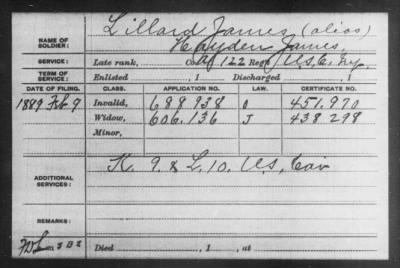 NAME OF SOLDIER: Lillard James (alias)
Hayden James,
SERVICE: Late rank, Co. A, 122 Reg't U.S.C. Inf.
TERM OF SERVICE: Enlisted , 1 Discharged , 1
DATE OF FILING. CLASS. APPLICATION NO. LAW. CERTIFICATE NO.
1889 Feb 9 Invalid, 688938 451.970
Widow, 606.136 J 438298
Minor,
ADDITIONAL SERVICES: K. 9. & L. 10. U.S. Cav
REMARKS:
Died , 1 , at